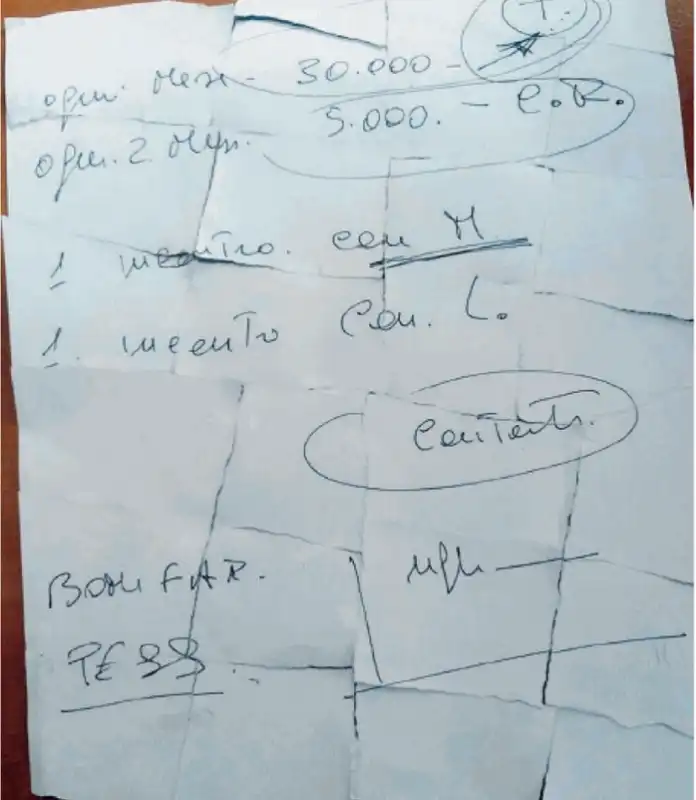 T.
ogni mese - 30.000 -
ogni 2 mesi. 5.000. - C.R.
1 incontro. con M
1. incontro con. L.
contratti.
BONIFAR.